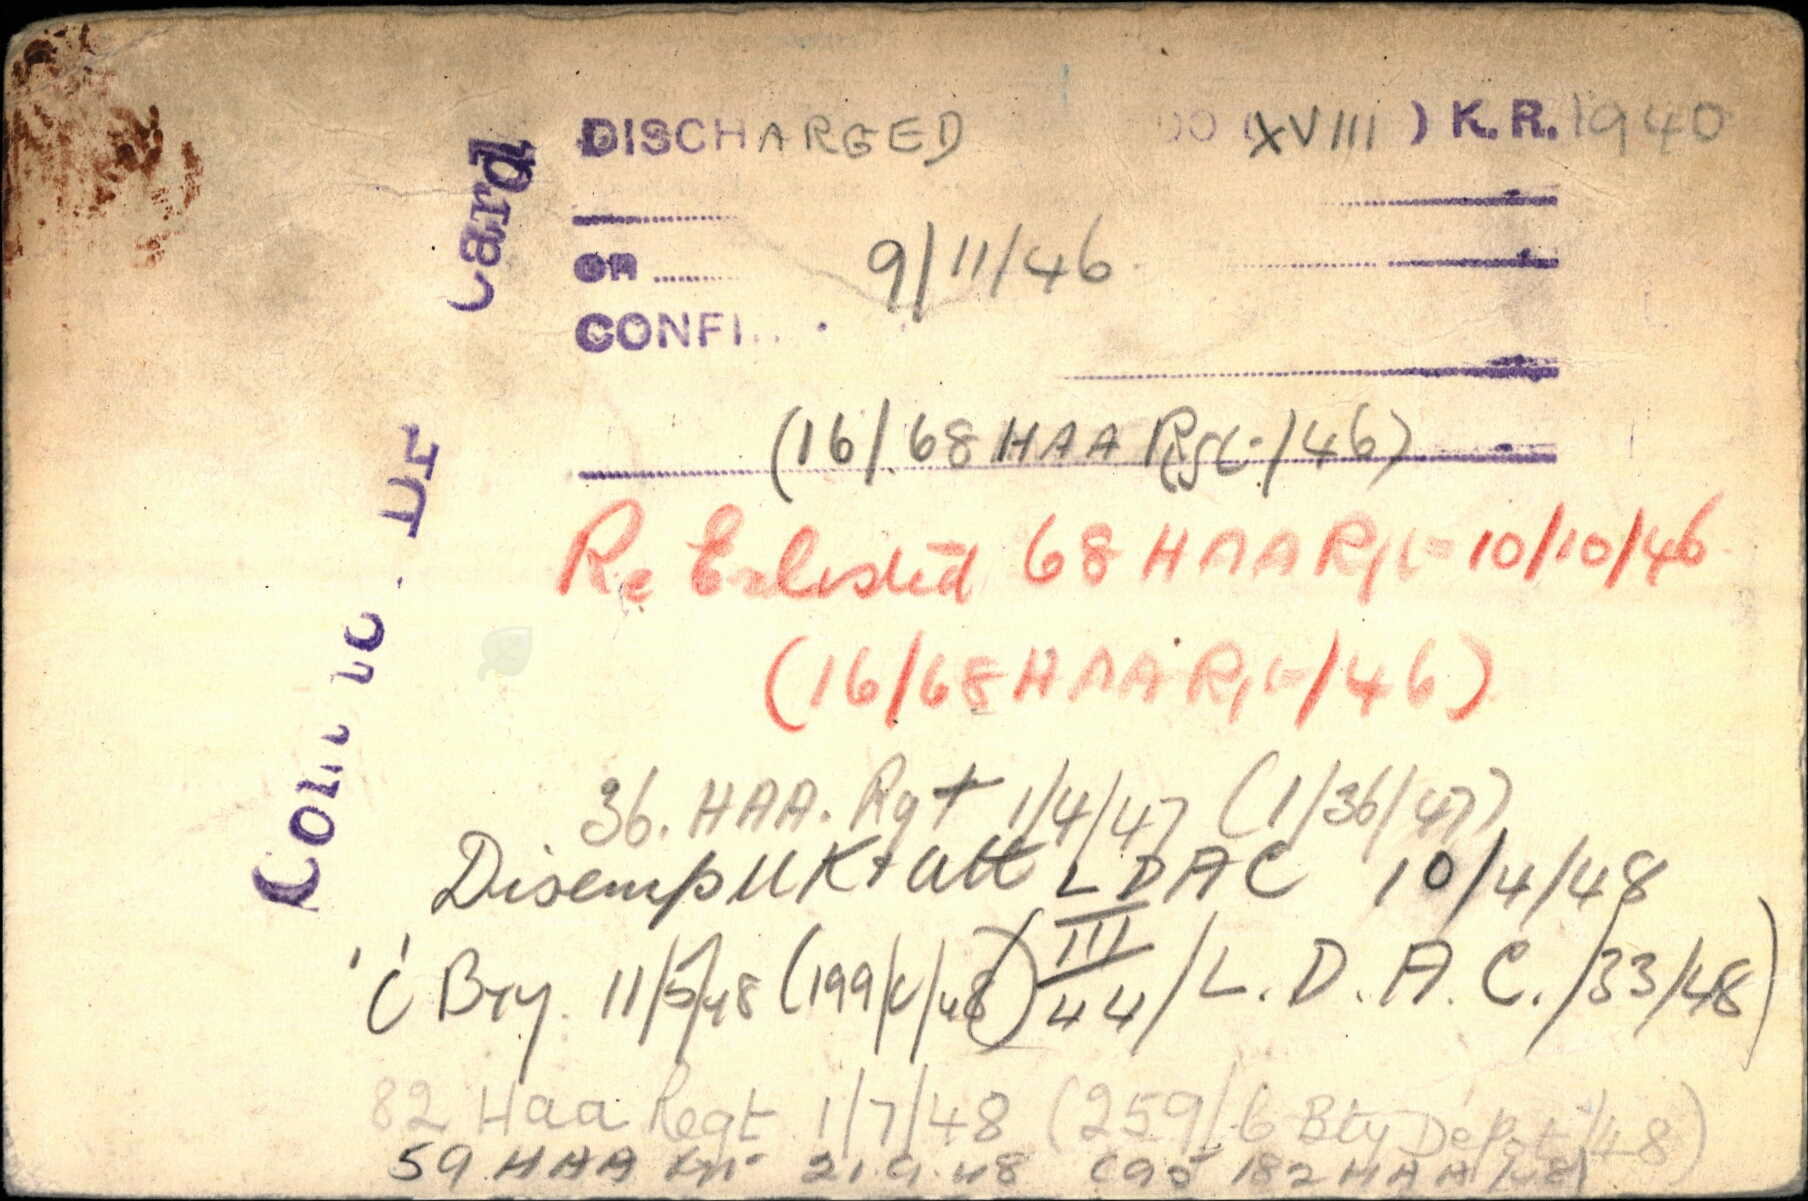 DISCHARGED (XVIII) K.R. 1940
OR
9/11/46
CONFI
(16/68 HAA Rgt/46)
Re Enlisted 68 HAA Rgt 10/10/46
(16/68 HAA Rgt/46)
36. HAA. Rgt 1/4/47 (1/36/47)
Disemb UK + att LDAC 10/4/48
III
'C' Bty. 11/5/48 (199/C/48) 44/L.D.A.C./33/48)
82 Haa Regt 1/7/48 (259/6 Bty Depot/48)
59 HAA 21.9.48 (95 182 HAA/48)
Card